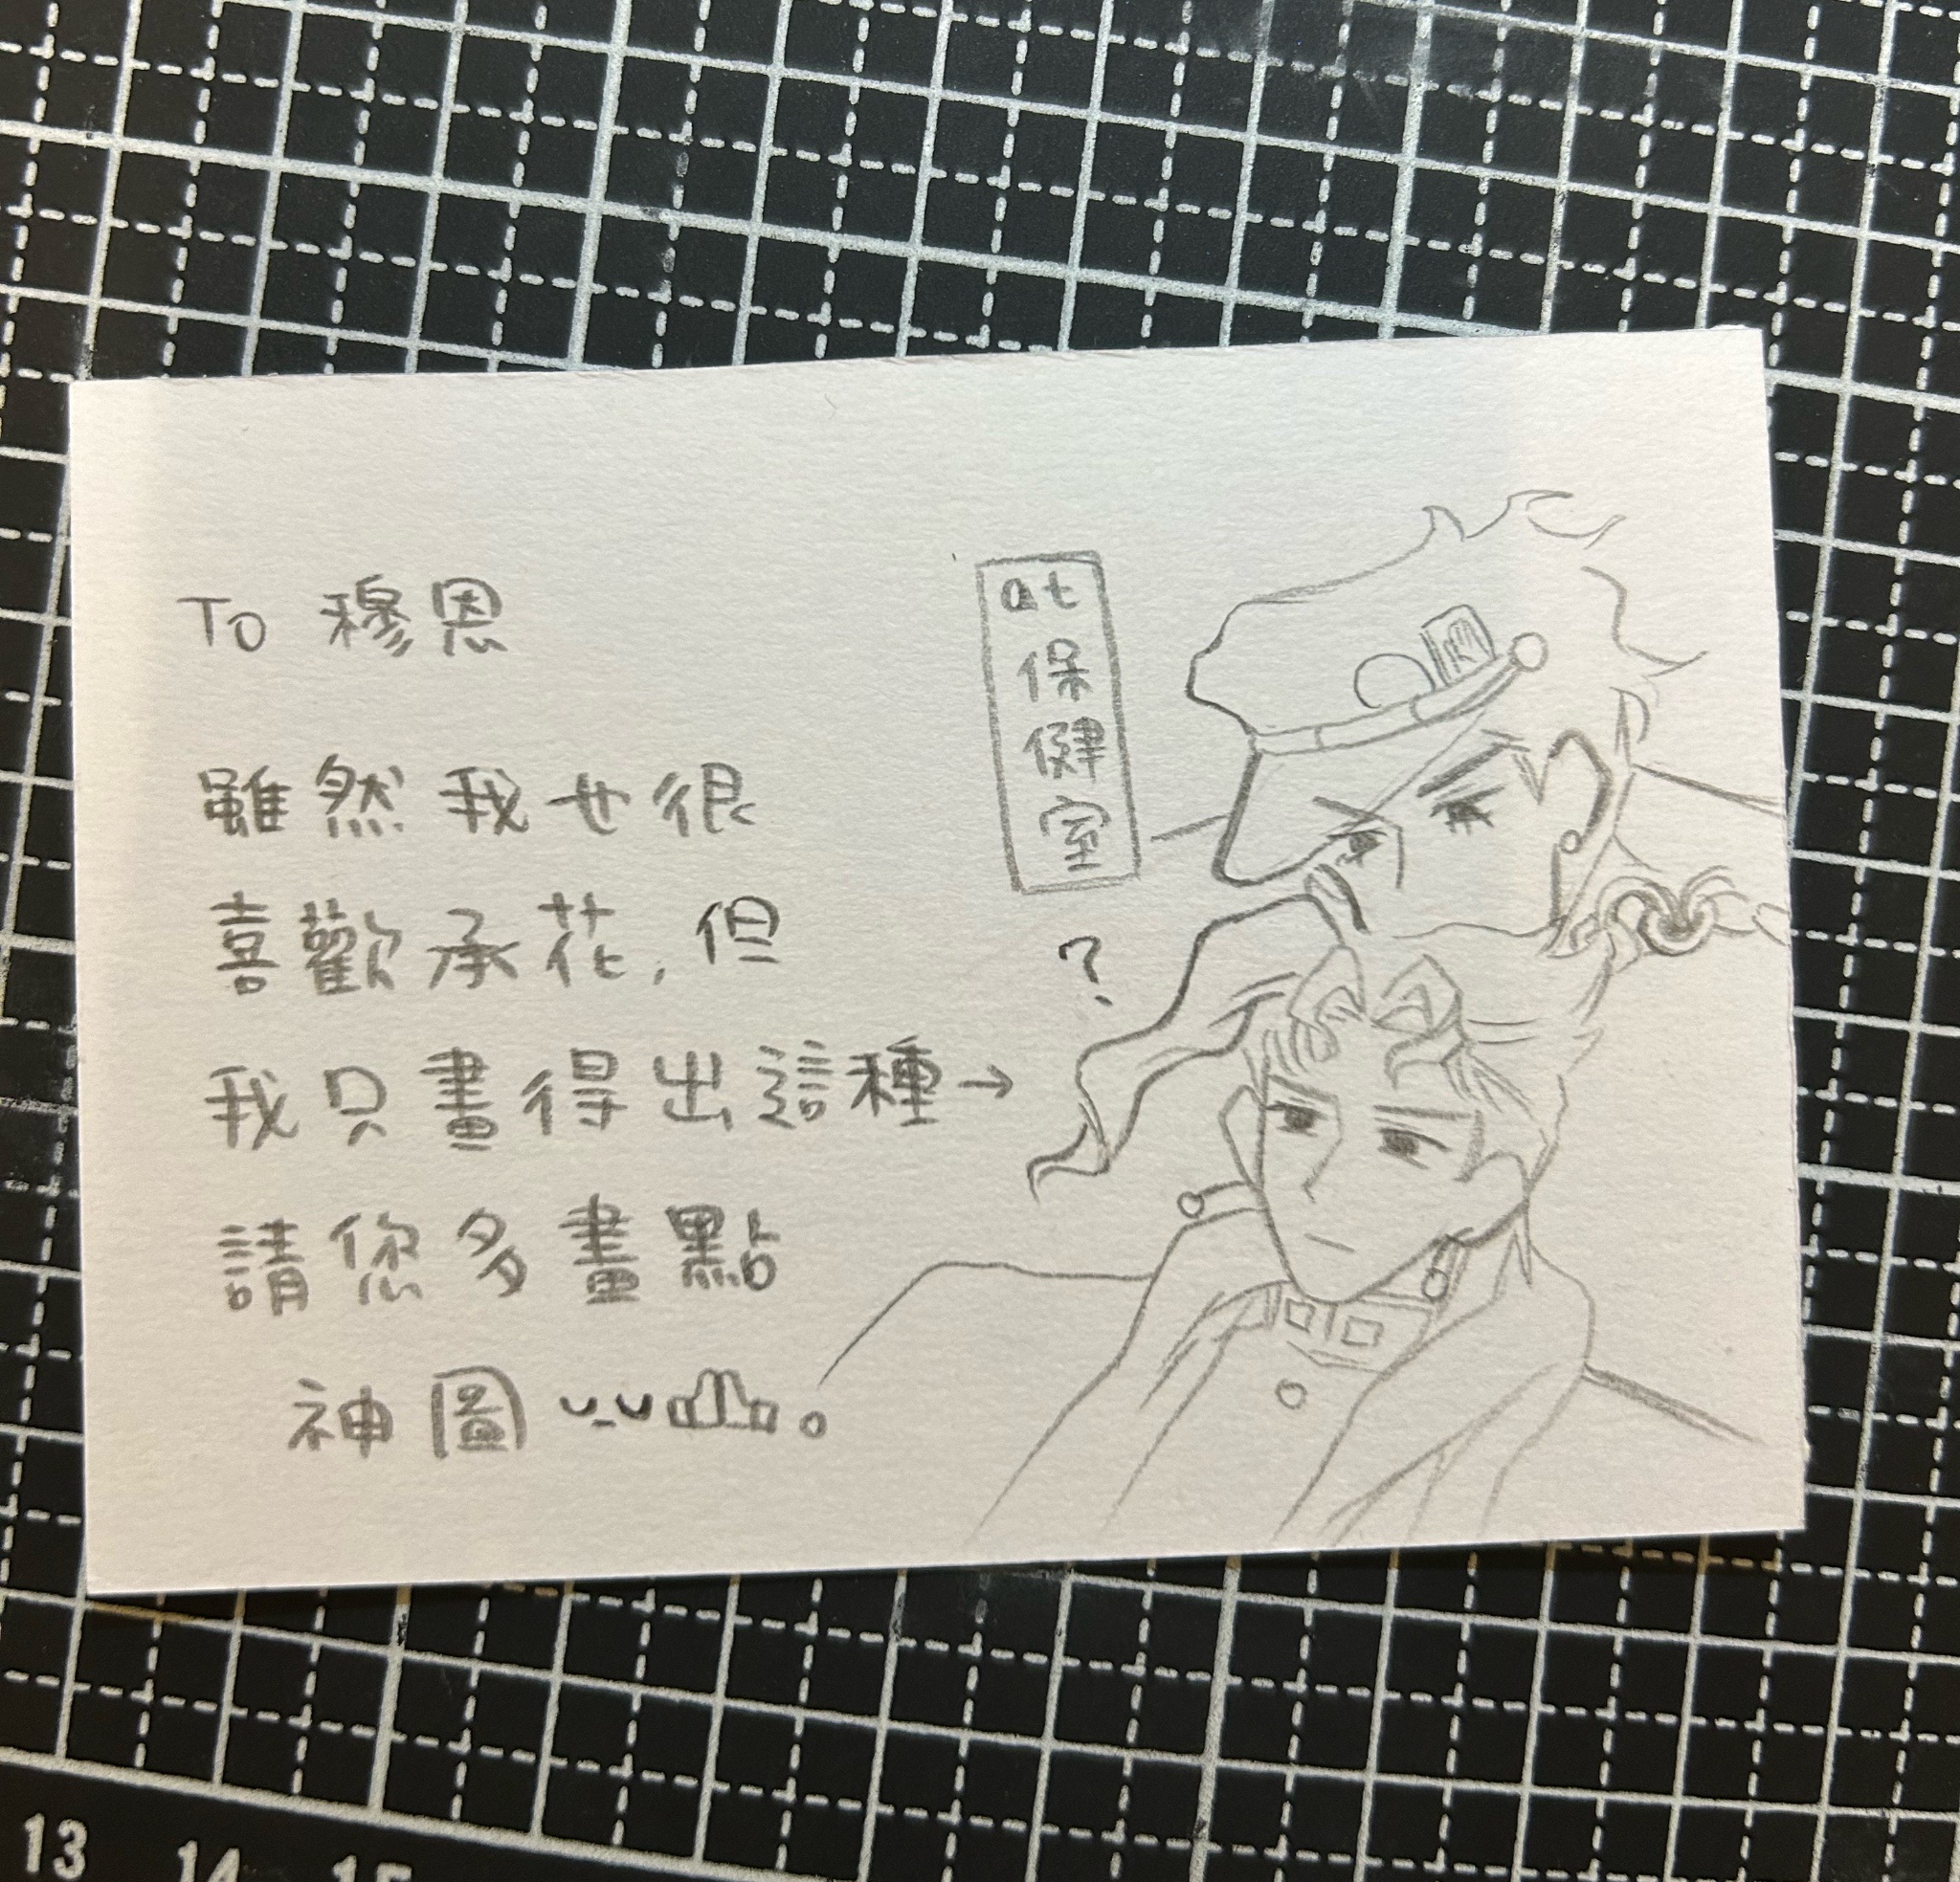 To 穆恩
雖然我也很
喜歡承花,但
我只畫得出這種→
請您多畫點
神圖
at
保
健
室
?
13
14
15